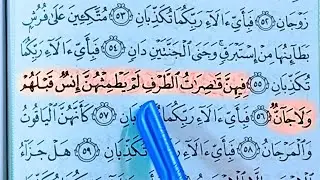 زَوْجَانِ ۝٥٢ فَبِأَيِّ ءَالَآءِ رَبِّكُمَا تُكَذِّبَانِ ۝٥٣ مُتَّكِـِٔينَ عَلَىٰ فُرُشٍۭ
بَطَآئِنُهَا مِنْ إِسْتَبْرَقٍ ۚ وَجَنَى ٱلْجَنَّتَيْنِ دَانٍ ۝٥٤ فَبِأَيِّ ءَالَآءِ رَبِّكُمَا
تُكَذِّبَانِ ۝٥٥ فِيهِنَّ قَٰصِرَٰتُ ٱلطَّرْفِ لَمْ يَطْمِثْهُنَّ إِنسٌ قَبْلَهُمْ
وَلَا جَآنٌّ ۝٥٦ فَبِأَيِّ ءَالَآءِ رَبِّكُمَا تُكَذِّبَانِ ۝٥٧ كَأَنَّهُنَّ ٱلْيَاقُوتُ
وَٱلْمَرْجَانُ ۝٥٨ فَبِأَيِّ ءَالَآءِ رَبِّكُمَا تُكَذِّبَانِ ۝٥٩ هَلْ جَزَآءُ